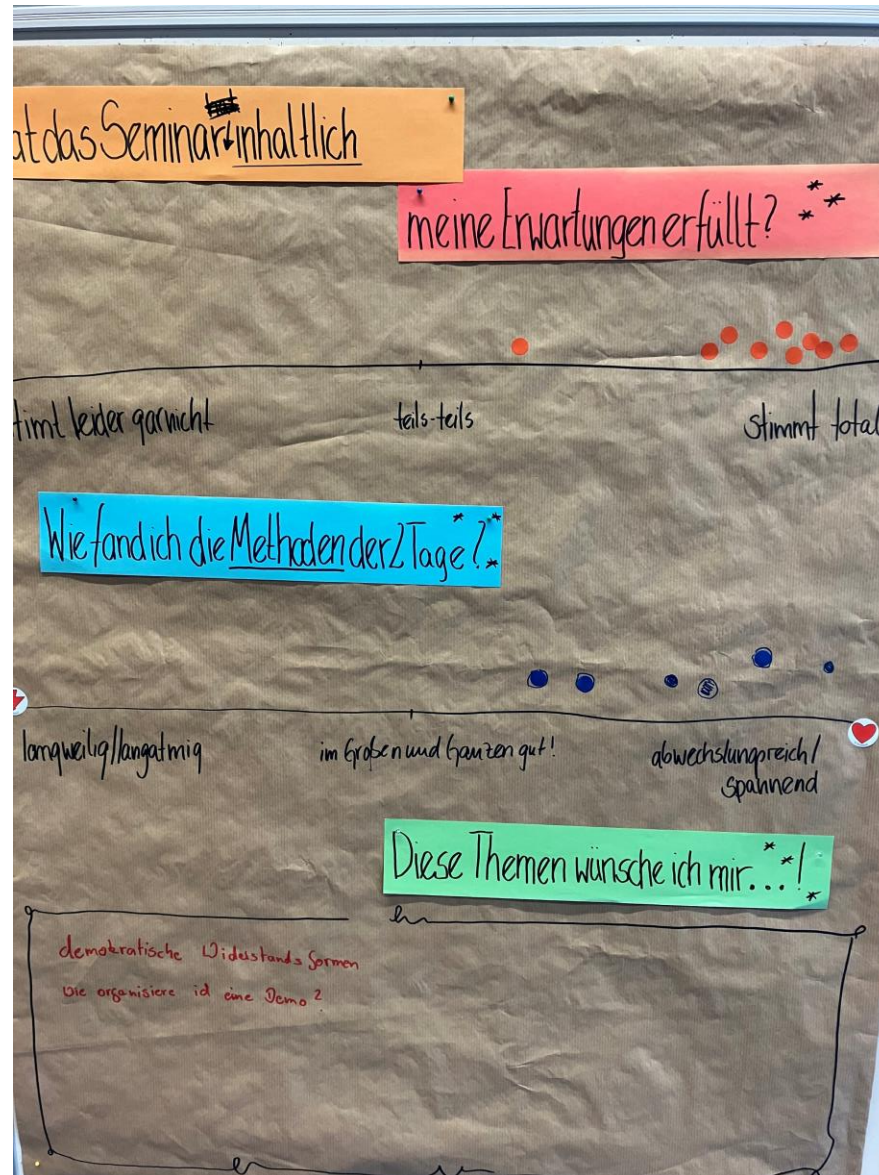 at das Seminar inhaltlich
meine Erwartungen erfüllt?
timt leider garnicht
teils-teils
stimmt total
Wie fand ich die Methoden der 2 Tage?
langweilig/langatmig
im Großen und Ganzen gut!
abwechslungreich/
spannend
Diese Themen wünsche ich mir...!
demokratische Widerstands formen
Wie organisiere ich eine Demo?